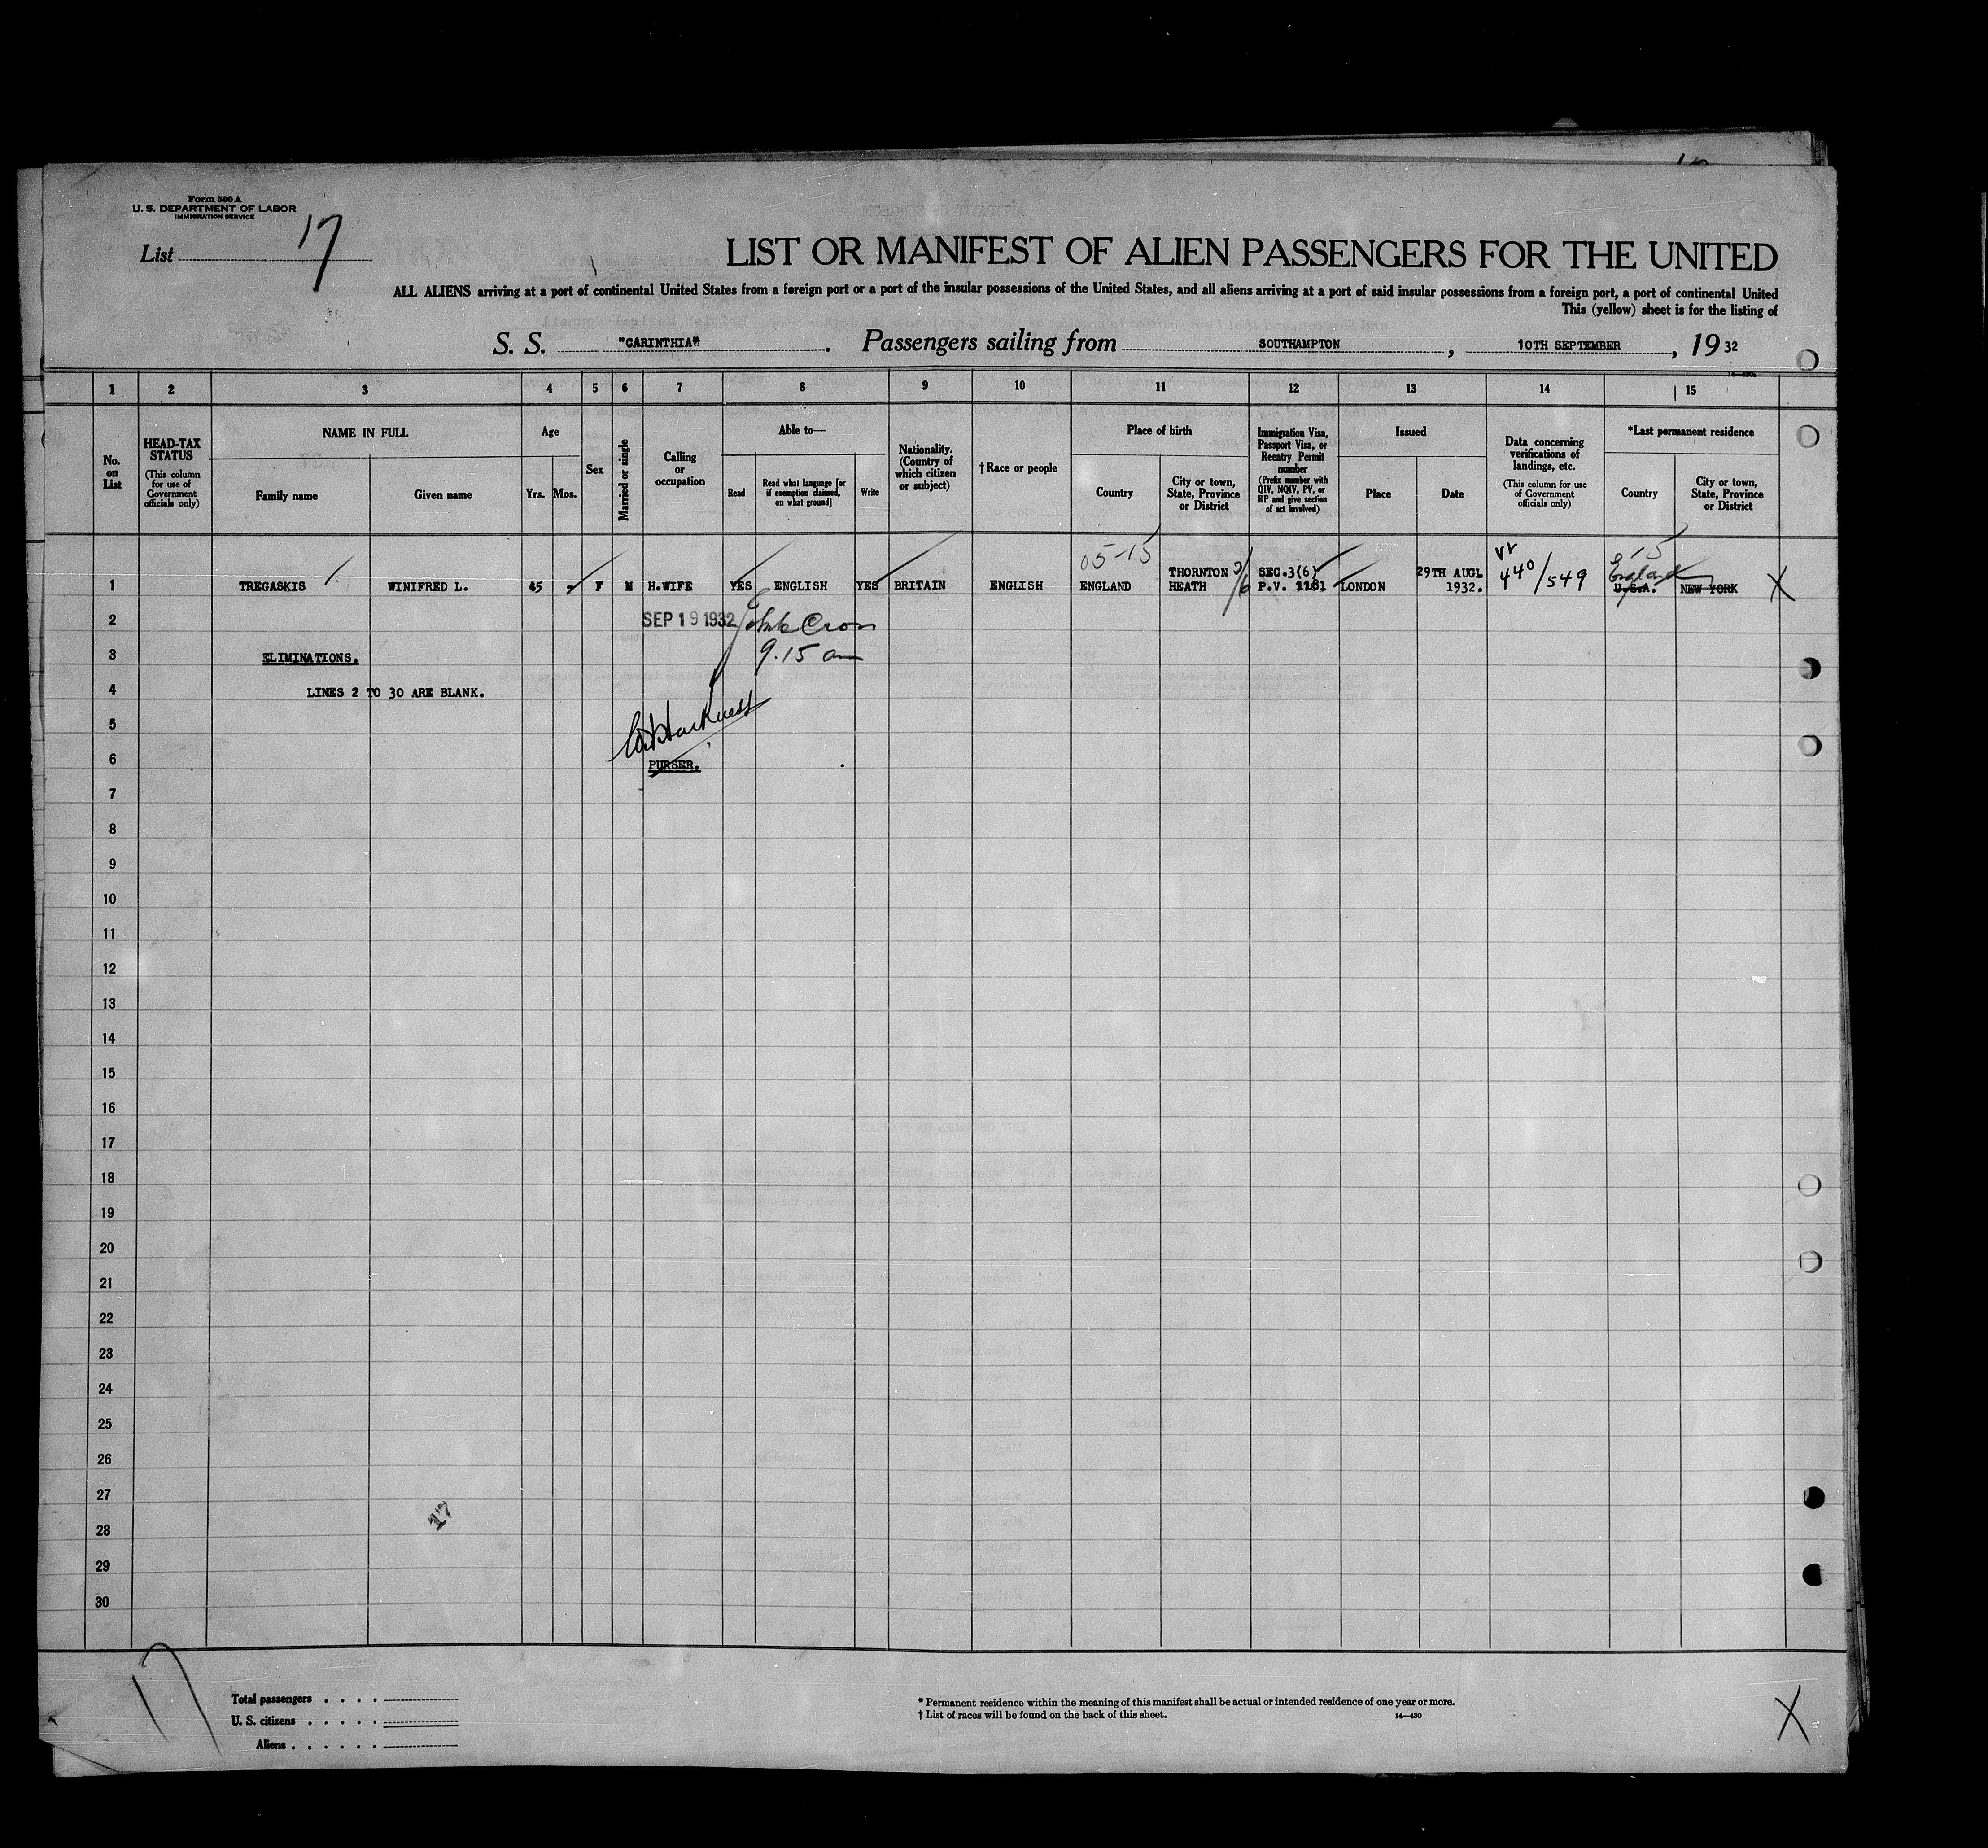 Form 500 A
U. S. DEPARTMENT OF LABOR
IMMIGRATION SERVICE
List 17
LIST OR MANIFEST OF ALIEN PASSENGERS FOR THE UNITED
ALL ALIENS arriving at a port of continental United States from a foreign port or a port of the insular possessions of the United States, and all aliens arriving at a port of said insular possessions from a foreign port, a port of continental United
This (yellow) sheet is for the listing of
S. S. "CARINTHIA". Passengers sailing from SOUTHAMPTON, 10TH SEPTEMBER, 19 32
1 2 3 4 5 6 7 8 9 10 11 12 13 14 15
No. on List
HEAD-TAX STATUS
(This column for use of Government officials only)
NAME IN FULL
Family name
Given name
Age
Yrs. Mos.
Sex
Married or single
Calling or occupation
Able to—
Read
Read what language [or if exemption claimed, on what ground]
Write
Nationality. (Country of which citizen or subject)
† Race or people
Place of birth
Country
City or town, State, Province or District
Immigration Visa, Passport Visa, or Reentry Permit number
(Prefix number with QIV, NQIV, PV, or RP and give section of act involved)
Issued
Place
Date
Data concerning verifications of landings, etc.
(This column for use of Government officials only)
*Last permanent residence
Country
City or town, State, Province or District
05-15
1 TREGASKIS WINIFRED L. 45 - F M H.WIFE YES ENGLISH YES BRITAIN ENGLISH ENGLAND THORNTON HEATH SEC.3(6) P.V. 1181 LONDON 29TH AUGL 1932. 440/549 England U.S.A. NEW YORK X
2 SEP 19 1932
3 ELIMINATIONS. 9.15 am
4 LINES 2 TO 30 ARE BLANK.
5
6 PURSER.
7
8
9
10
11
12
13
14
15
16
17
18
19
20
21
22
23
24
25
26
27
17
28
29
30
17
Total passengers . . . .
U. S. citizens . . . . .
Aliens . . . . . .
* Permanent residence within the meaning of this manifest shall be actual or intended residence of one year or more.
† List of races will be found on the back of this sheet.
14—430
X